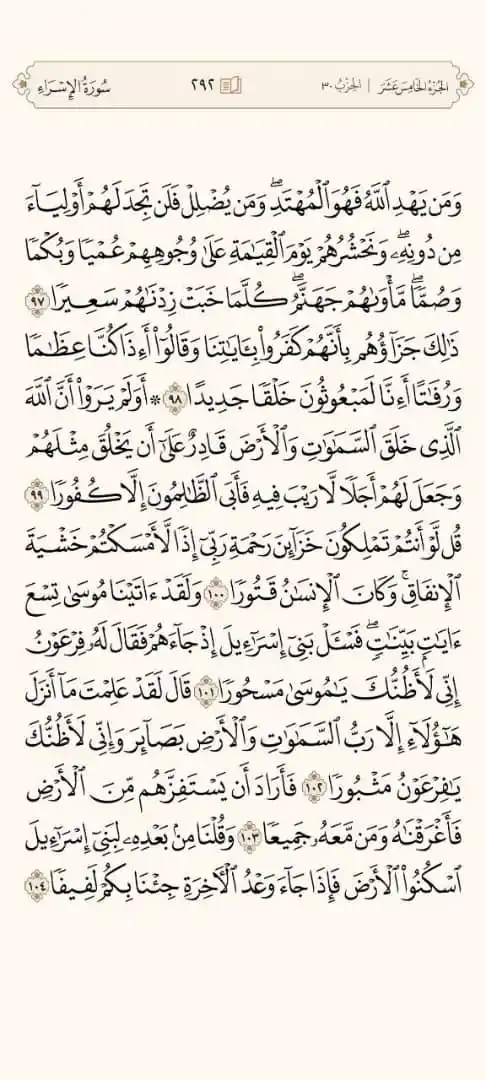 سُورَةُ الإِسۡرَاءِ ٢٩٢ الجُزۡءُ الخَامِسَ عَشَرَ | الحِزۡبُ ٣٠
وَمَن يَهۡدِ ٱللَّهُ فَهُوَ ٱلۡمُهۡتَدِۖ وَمَن يُضۡلِلۡ فَلَن تَجِدَ لَهُمۡ أَوۡلِيَآءَ
مِن دُونِهِۦۖ وَنَحۡشُرُهُمۡ يَوۡمَ ٱلۡقِيَٰمَةِ عَلَىٰ وُجُوهِهِمۡ عُمۡيٗا وَبُكۡمٗا
وَصُمّٗاۖ مَّأۡوَىٰهُمۡ جَهَنَّمُۖ كُلَّمَا خَبَتۡ زِدۡنَٰهُمۡ سَعِيرٗا ٩٧
ذَٰلِكَ جَزَآؤُهُم بِأَنَّهُمۡ كَفَرُواْ بِـَٔايَٰتِنَا وَقَالُوٓاْ أَءِذَا كُنَّا عِظَٰمٗا
وَرُفَٰتًا أَءِنَّا لَمَبۡعُوثُونَ خَلۡقٗا جَدِيدًا ٩٨ ۞ أَوَلَمۡ يَرَوۡاْ أَنَّ ٱللَّهَ
ٱلَّذِي خَلَقَ ٱلسَّمَٰوَٰتِ وَٱلۡأَرۡضَ قَادِرٌ عَلَىٰٓ أَن يَخۡلُقَ مِثۡلَهُمۡ
وَجَعَلَ لَهُمۡ أَجَلٗا لَّا رَيۡبَ فِيهِ فَأَبَى ٱلظَّٰلِمُونَ إِلَّا كُفُورٗا ٩٩
قُل لَّوۡ أَنتُمۡ تَمۡلِكُونَ خَزَآئِنَ رَحۡمَةِ رَبِّيٓ إِذٗا لَّأَمۡسَكۡتُمۡ خَشۡيَةَ
ٱلۡإِنفَاقِۚ وَكَانَ ٱلۡإِنسَٰنُ قَتُورٗا ١٠٠ وَلَقَدۡ ءَاتَيۡنَا مُوسَىٰ تِسۡعَ
ءَايَٰتِۭ بَيِّنَٰتٖۖ فَسۡـَٔلۡ بَنِيٓ إِسۡرَٰٓءِيلَ إِذۡ جَآءَهُمۡ فَقَالَ لَهُۥ فِرۡعَوۡنُ
إِنِّي لَأَظُنُّكَ يَٰمُوسَىٰ مَسۡحُورٗا ١٠١ قَالَ لَقَدۡ عَلِمۡتَ مَآ أَنزَلَ
هَٰٓؤُلَآءِ إِلَّا رَبُّ ٱلسَّمَٰوَٰتِ وَٱلۡأَرۡضِ بَصَآئِرَ وَإِنِّي لَأَظُنُّكَ
يَٰفِرۡعَوۡنُ مَثۡبُورٗا ١٠٢ فَأَرَادَ أَن يَسۡتَفِزَّهُم مِّنَ ٱلۡأَرۡضِ
فَأَغۡرَقۡنَٰهُ وَمَن مَّعَهُۥ جَمِيعٗا ١٠٣ وَقُلۡنَا مِنۢ بَعۡدِهِۦ لِبَنِيٓ إِسۡرَٰٓءِيلَ
ٱسۡكُنُواْ ٱلۡأَرۡضَ فَإِذَا جَآءَ وَعۡدُ ٱلۡأٓخِرَةِ جِئۡنَا بِكُمۡ لَفِيفٗا ١٠٤